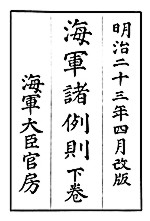 明治二十三年四月改版
海軍諸例則下巻
海軍大臣官房